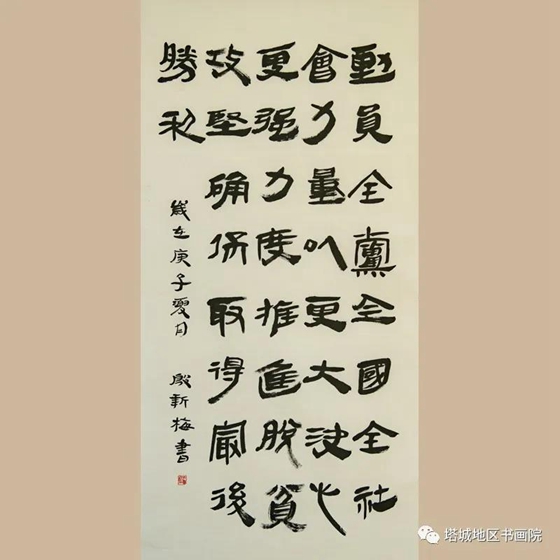 動員全黨全國全社
會力量以更大決心
更强力度推進脫貧
攻堅确保取得最後
勝利
歲在庚子夏月 新梅書
塔城地区书画院